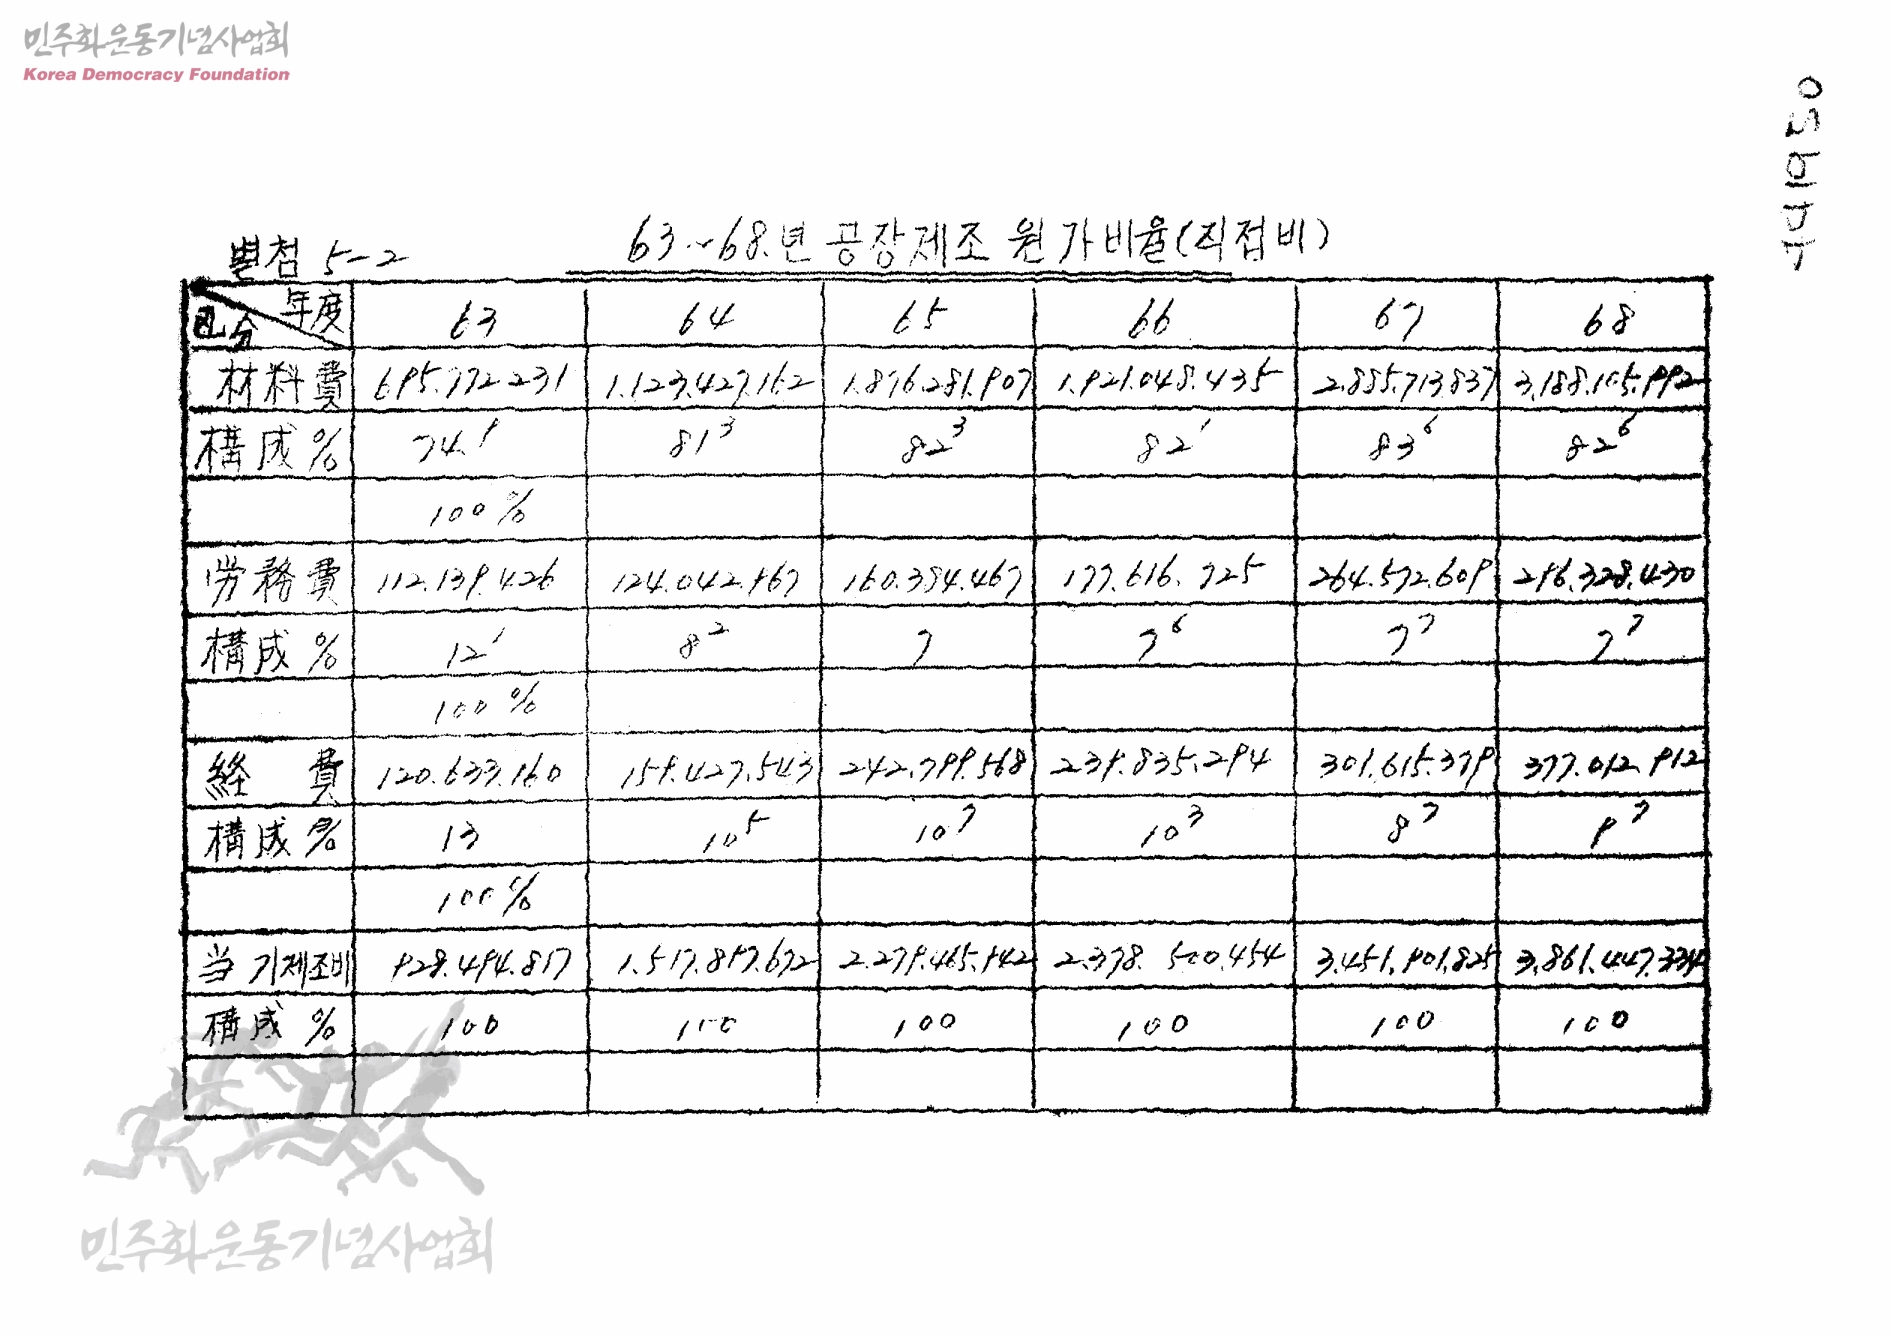 민주화운동기념사업회
Korea Democracy Foundation
별첨 5-2
63~68.년 공장제조 원가비율(직접비)
年度 区分 63 64 65 66 67 68
材料費 695.722.231 1.123.427.162 1.876.281.907 1.921.048.435 2.885.713.837 3.188.105.992
構成% 74.9 81³ 82³ 82¹ 83⁶ 82⁶
100%
労務費 112.139.426 124.042.967 160.384.467 177.616.725 264.572.609 296.328.430
構成% 12¹ 8² 7 7⁶ 7⁷ 7⁷
100%
経費 120.633.160 159.427.543 242.799.568 239.835.294 301.615.379 377.012.912
構成% 13 10⁵ 10⁷ 10³ 8⁷ 9⁷
100%
当기제조비 928.494.817 1.517.897.672 2.279.465.942 2.338.500.454 3.451.901.825 3.861.447.334
構成% 100 100 100 100 100 100
민주화운동기념사업회